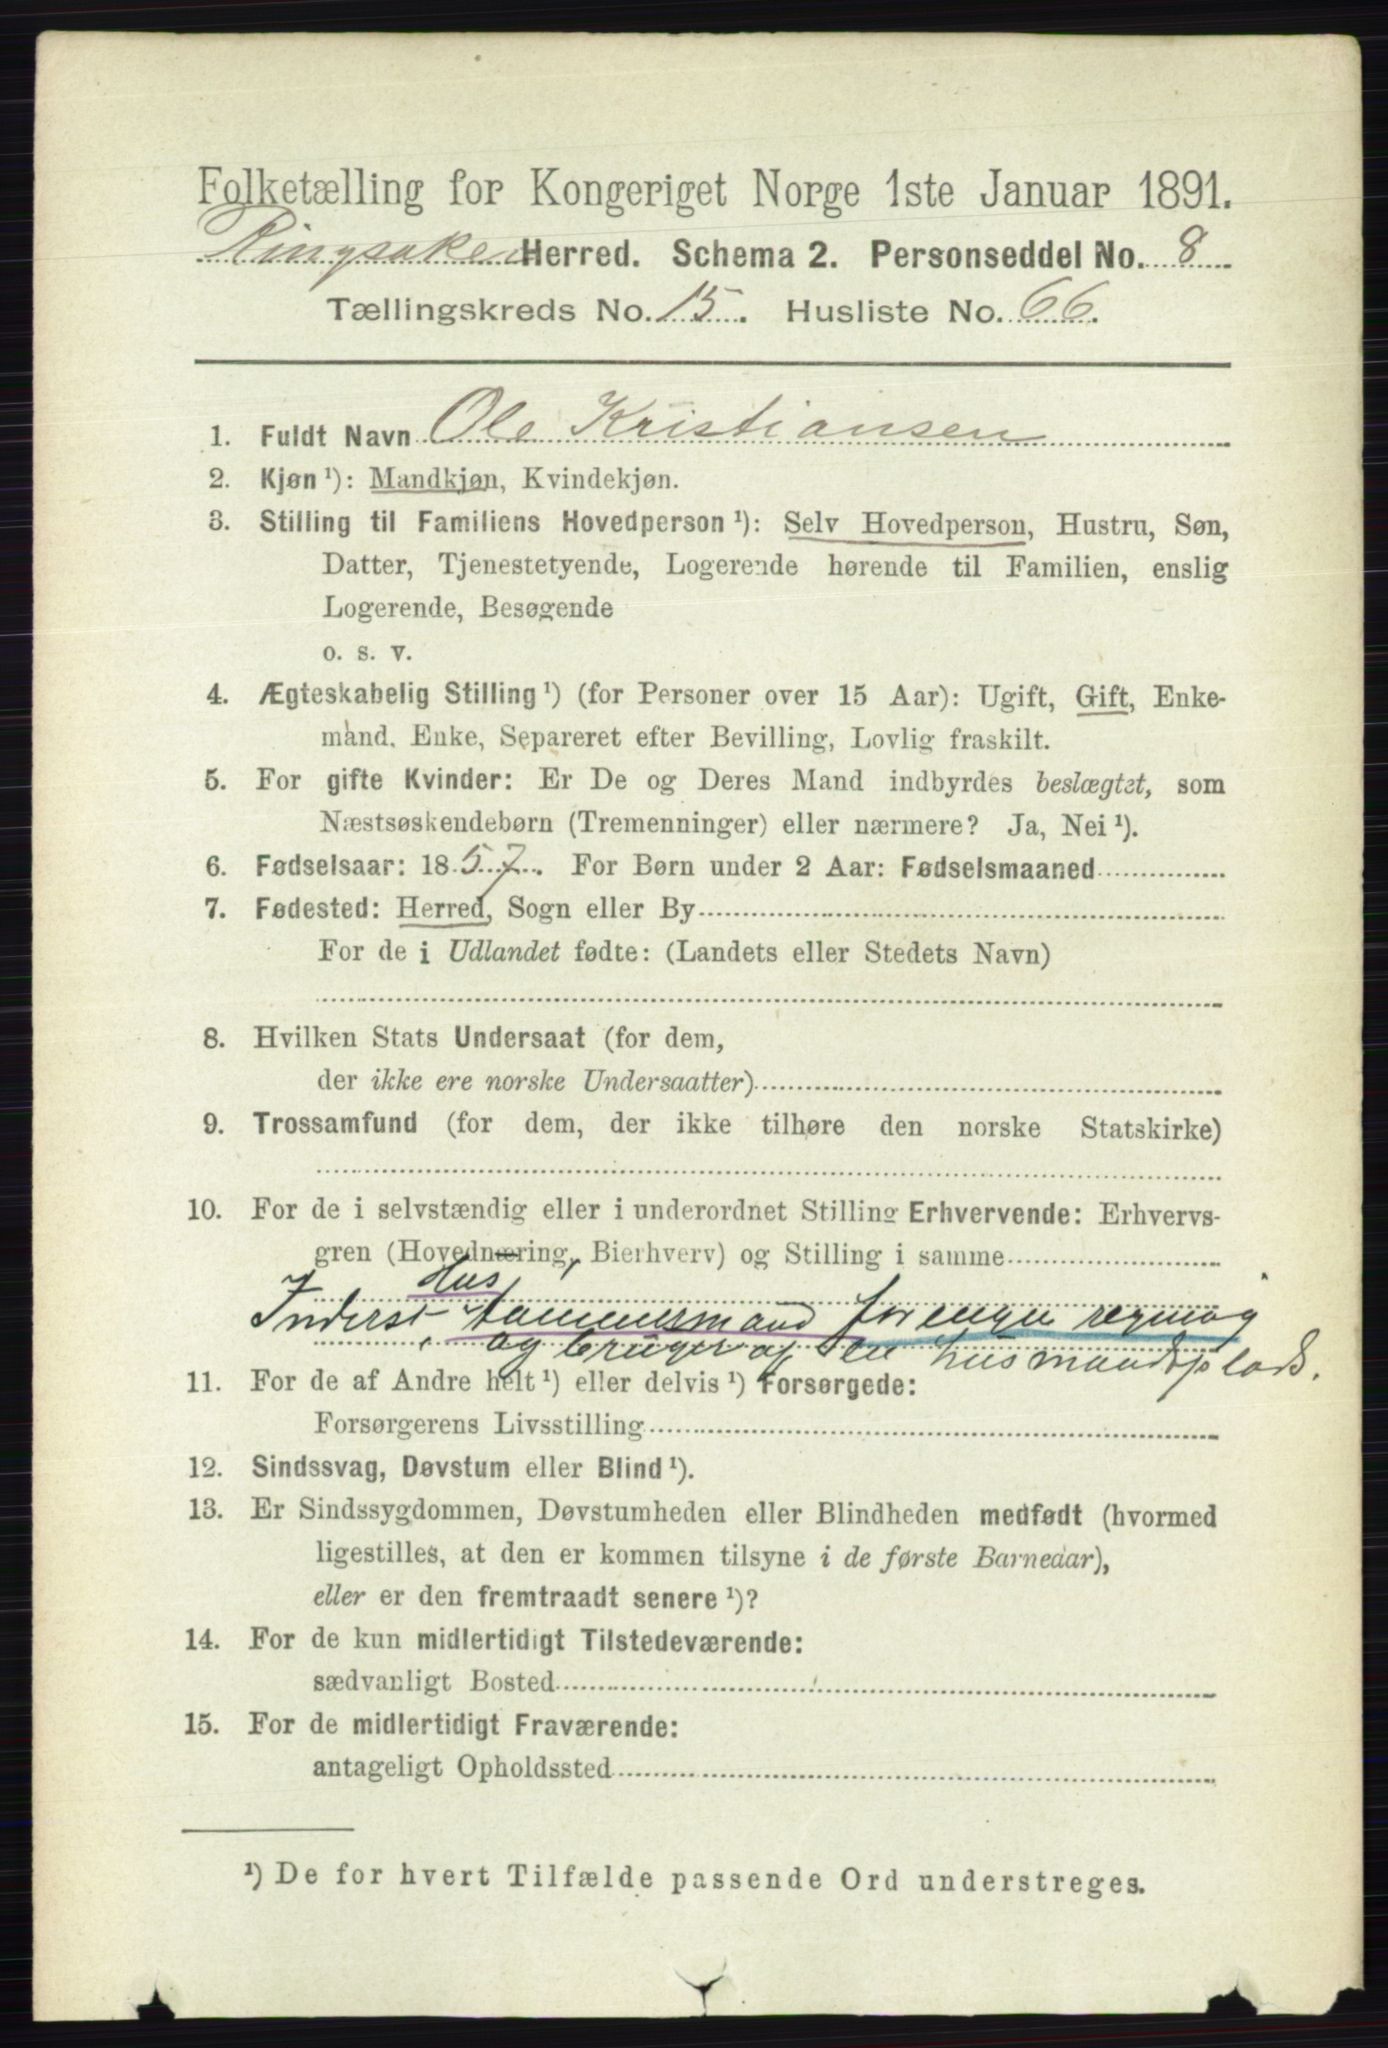 Folketælling for Kongeriget Norge 1ste Januar 1891.
Ringsaker Herred. Schema 2. Personseddel No. 8
Tællingskreds No. 15. Husliste No. 66.
1. Fuldt Navn Ole Kristiansen
2. Kjøn ¹): Mandkjøn, Kvindekjøn.
3. Stilling til Familiens Hovedperson ¹): Selv Hovedperson, Hustru, Søn,
Datter, Tjenestetyende, Logerende hørende til Familien, enslig
Logerende, Besøgende
o. s. v.
4. Ægteskabelig Stilling ¹) (for Personer over 15 Aar): Ugift, Gift, Enke-
mand, Enke, Separeret efter Bevilling, Lovlig fraskilt.
5. For gifte Kvinder: Er De og Deres Mand indbyrdes beslægtet, som
Næstsøskendebørn (Tremenninger) eller nærmere? Ja, Nei ¹).
6. Fødselsaar: 1857. For Børn under 2 Aar: Fødselsmaaned
7. Fødested: Herred, Sogn eller By
For de i Udlandet fødte: (Landets eller Stedets Navn)
8. Hvilken Stats Undersaat (for dem,
der ikke ere norske Undersaatter)
9. Trossamfund (for dem, der ikke tilhøre den norske Statskirke)
10. For de i selvstændig eller i underordnet Stilling Erhvervende: Erhvervs-
gren (Hovednæring, Bierhverv) og Stilling i samme
Hus
Inderst tømmermand for engen regning
og bruger af en husmandsplads.
11. For de af Andre helt ¹) eller delvis ¹) Forsørgede:
Forsørgerens Livsstilling
12. Sindssvag, Døvstum eller Blind ¹).
13. Er Sindssygdommen, Døvstumheden eller Blindheden medfødt (hvormed
ligestilles, at den er kommen tilsyne i de første Barneaar),
eller er den fremtraadt senere ¹)?
14. For de kun midlertidigt Tilstedeværende:
sædvanligt Bosted
15. For de midlertidigt Fraværende:
antageligt Opholdssted
¹) De for hvert Tilfælde passende Ord understreges.